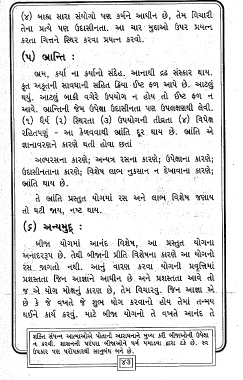 (૪) બાહ્ય સારા સંયોગો પણ કર્મને આધીન છે, તેમ વિચારી
તેના પ્રત્યે પણ ઉદાસીનતા. આ ચાર મુદ્દાઓ ઉપર પ્રયત્ન
કરતા ચિત્તને સ્થિર કરવા પ્રયત્ન કરવો.
(૫) ભ્રાન્તિ :
ભ્રમ, કર્યા ના કર્યાનો સંદેહ. આનાથી દ્રઢ સંસ્કાર થાય.
કૃત અકૃતની સાવધાની સહિત ક્રિયા ઈષ્ટ ફળ આપે છે. આટલું
થયું, આટલું બાકી વગેરે ઉપયોગ ન હોય તો ઈષ્ટ ફળ ન
આવે. ભ્રાન્તિની જેમ ઉપેક્ષા ઉદાસીનતા પણ ઉપલક્ષણથી લેવી.
(૧) ધૈર્ય (૨) સ્થિરતા (૩) ઉપયોગની તીવ્રતા (૪) વિક્ષેપ
રહિતપણું - આ કેળવવાથી ભ્રાંતિ દૂર થાય છે. ભ્રાંતિ એ
જ્ઞાનાવરણને કારણે થતી હોવા છતાં
અલ્પરસના કારણે; અન્યત્ર રસના કારણે; ઉપેક્ષાના કારણે;
ઉદાસીનતાના કારણે; વિશેષ લાભ નુકસાન ન દેખાવાના કારણે;
ભ્રાંતિ થાય છે.
તે ભ્રાંતિ પ્રસ્તુત યોગમાં રસ અને લાભ વિશેષ જણાય
તો ઘટી જાય, નષ્ટ થાય.
(૬) અન્યમુદ્ :
બીજા યોગમાં આનંદ વિશેષ, આ પ્રસ્તુત યોગના
અનાદરરૂપ છે. તેથી બીજાની પ્રીતિ વિશેષના કારણે આ યોગનો
રસ જાગતો નથી. આનું વારણ કરવા યોગની પ્રવૃત્તિમાં
પ્રશસ્તતા જિન આજ્ઞાને આધીન છે અને પ્રશસ્તતા આવે તો
જ એ યોગ મોક્ષનું કારણ છે, તેમ વિચારવુ. જિન આજ્ઞા એ
છે કે જે વખતે જે શુભ યોગ કરવાનો હોય તેમાં તન્મય
થઈને કાર્ય કરવું. માટે બીજા યોગનો તે વખતે આનંદ તે
શક્તિ સંપન્ન આત્માઓએ પોતાની આરાધનાને મુખ્ય કરી બીજાઓની ઉપેક્ષા
ન કરવી. શાસનની પરંપરા બીજાઓને ધર્મ પમાડવા દ્વારા ટકે છે. સ્વ
ઉપકાર પણ પરોપકારથી સાનુબંધ બને છે.
૪૩